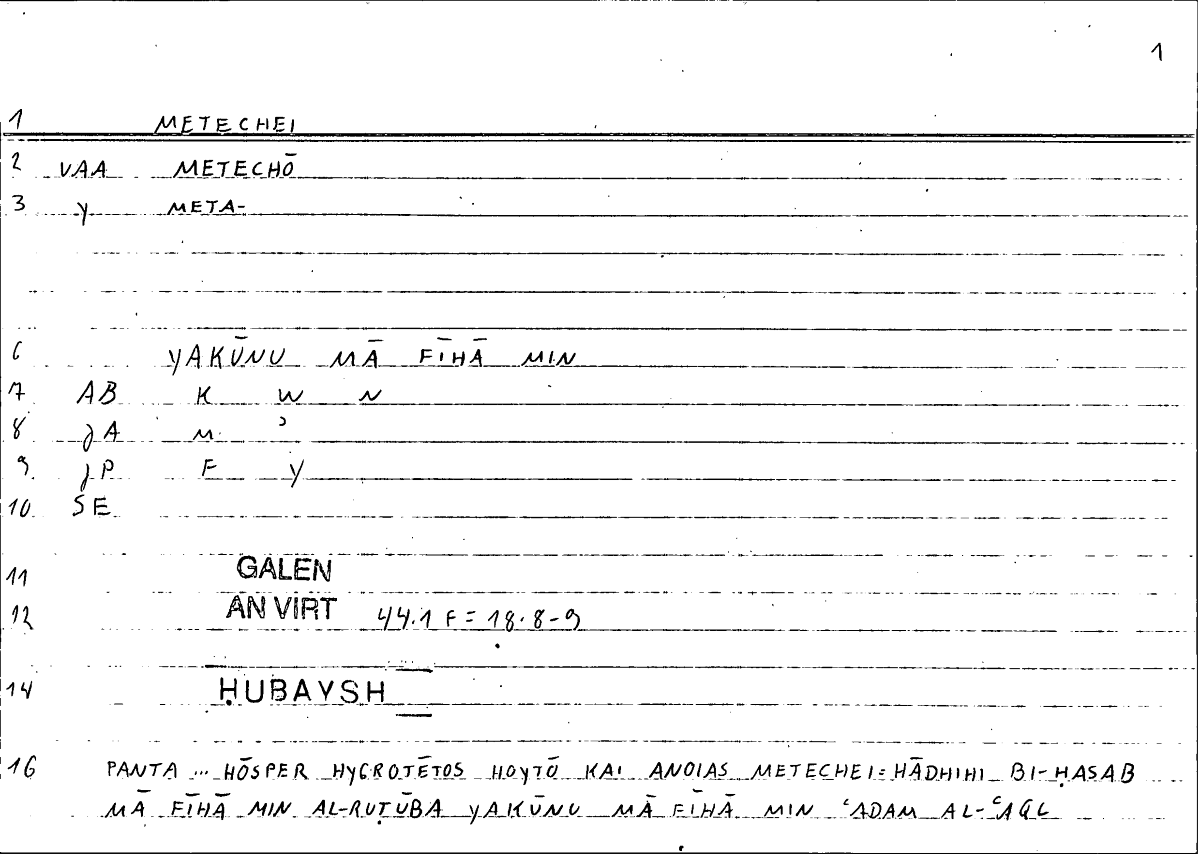 1
1 METECHEI
2 VAA METECHŌ
3 y META-
6 YAKŪNU MĀ FĪHĀ MIN
7 AB K W N
8 M ʾ
9 F Y
10 SE
11 GALEN
12 AN VIRT 44.1 F = 18.8-9
14 ḤUBAYSH
16 PANTA ... HŌSPER HYGROTĒTOS HOYTŌ KAI ANOIAS METECHEI: HĀDHIHI BI-ḤASAB
MĀ FĪHĀ MIN AL-RUṬŪBA YAKŪNU MĀ FĪHĀ MIN ʿADAM AL-ʿAQL